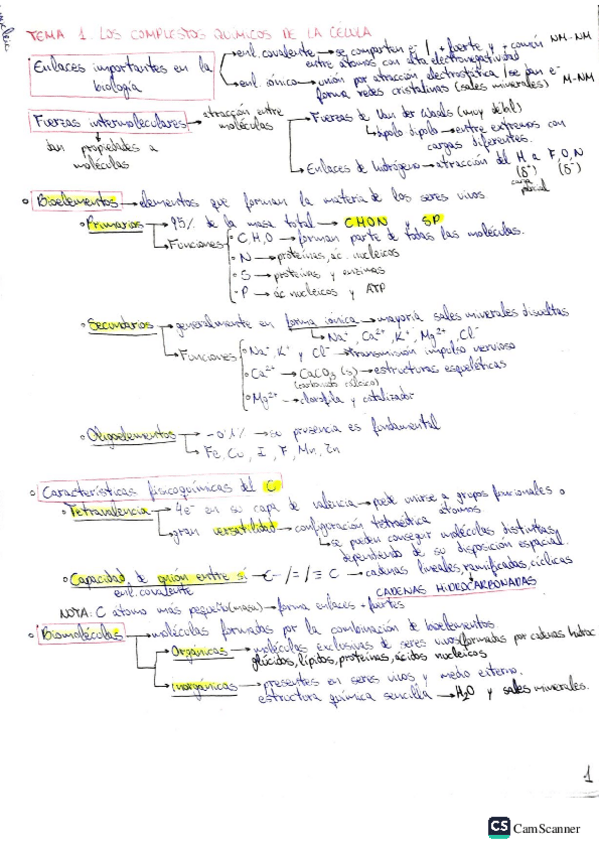 TEMA 1. LOS COMPUESTOS QUÍMICOS DE LA CÉLULA
Enlaces importantes en la biología
enl. covalente → se comparten e-, + fuerte y + común NM-NM
entre átomos con alta electronegatividad
enl. iónico → unión por atracción electrostática, se dan e-
forma redes cristalinas (sales minerales) M-NM
Fuerzas intermoleculares → atracción entre moléculas
dan propiedades a moléculas
Fuerzas de Van der Waals (muy débil)
dipolo dipolo → entre extremos con
cargas diferentes.
Enlaces de hidrógeno → atracción del H a F, O, N
(δ+) (δ-)
carga parcial
Bioelementos → elementos que forman la materia de los seres vivos.
Primarios → 95% de la masa total → CHON y SP
Funciones
C, H, O → forman parte de todas las moléculas.
N → proteínas, ác. nucleicos
S → proteínas y enzimas
P → ác nucleicos y ATP
Secundarios → generalmente en forma iónica → mayoría sales minerales disueltas
Na+, Ca2+, K+, Mg2+, Cl-
Funciones
Na+, K+ y Cl- → transmisión impulso nervioso
Ca2+ → CaCO3 (s) → estructuras esqueléticas
(carbonato cálcico)
Mg2+ → clorofila y catalizador
Oligoelementos → -0.1% → su presencia es fundamental
Fe, Cu, I, F, Mn, Zn
Características fisicoquímicas del C
Tetravalencia → 4e- en su capa de valencia → puede unirse a grupos funcionales o
átomos
gran versatilidad → configuración tetraédrica
se pueden conseguir moléculas distintas,
dependiendo de su disposición espacial.
Capacidad de unión entre sí → C-/=/≡ C → cadenas lineales, ramificadas, cíclicas
enl. covalente
CADENAS HIDROCARBONADAS
NOTA: C átomo más pequeño (masa) → forma enlaces + fuertes
Biomoléculas → moléculas formadas por la combinación de bioelementos
Orgánicas → moléculas exclusivas de seres vivos formadas por cadenas hidroc
glúcidos, lípidos, proteínas, ácidos nucleicos
Inorgánicas → presentes en seres vivos y medio externo.
estructura química sencilla → H2O y sales minerales.
1
CS CamScanner